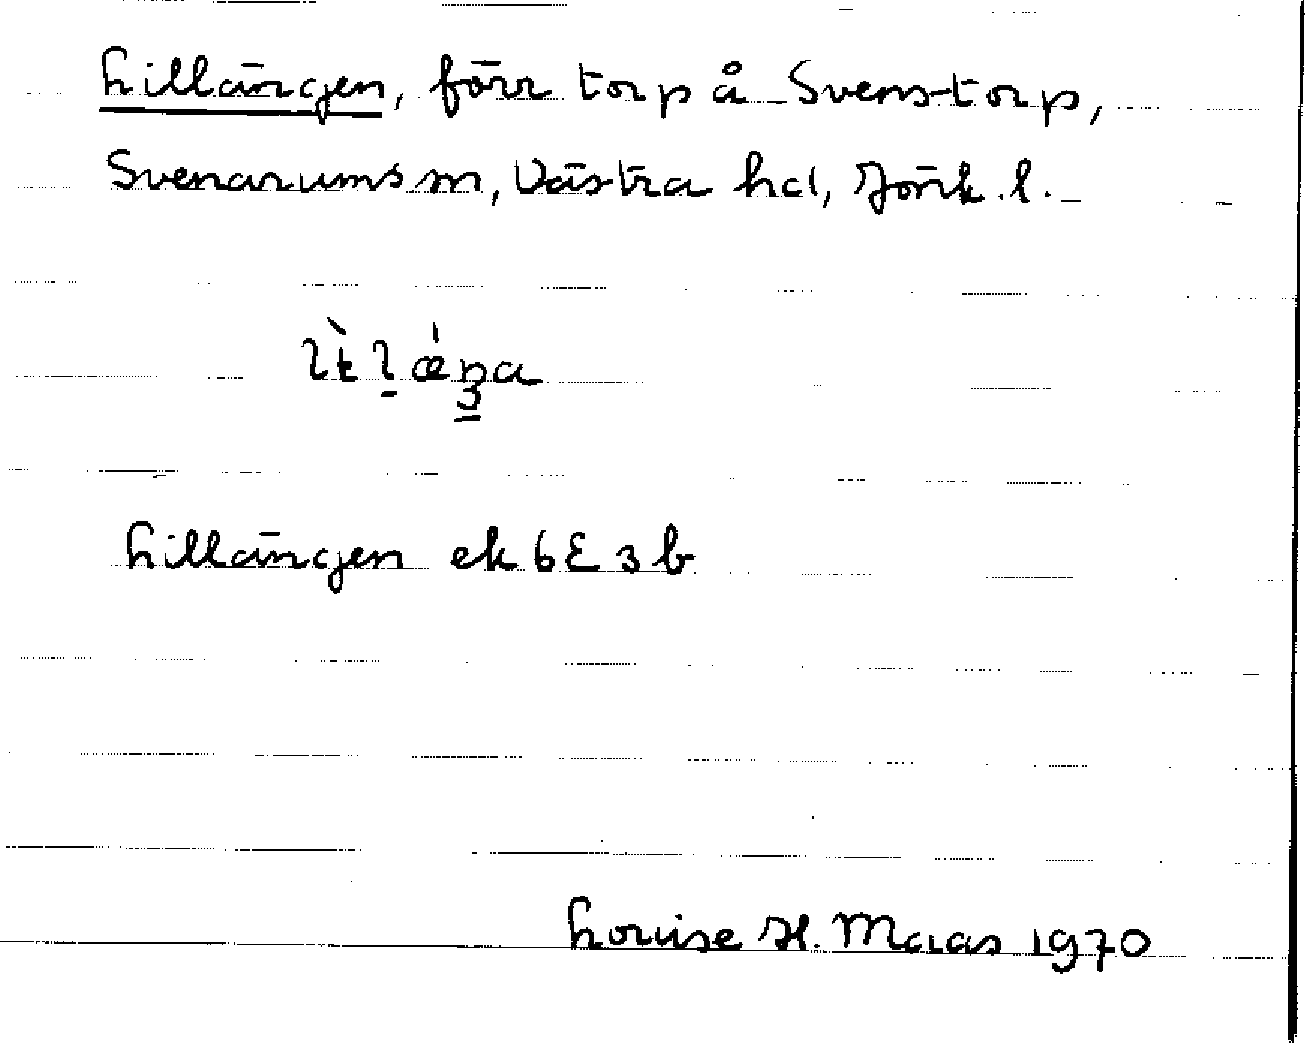 Lillängen, förr torp å Svenstorp,
Svenarums sn, Västra hd, Jönk. l.
Lillängen ek 6E 3b
Louise H. Maas 1970